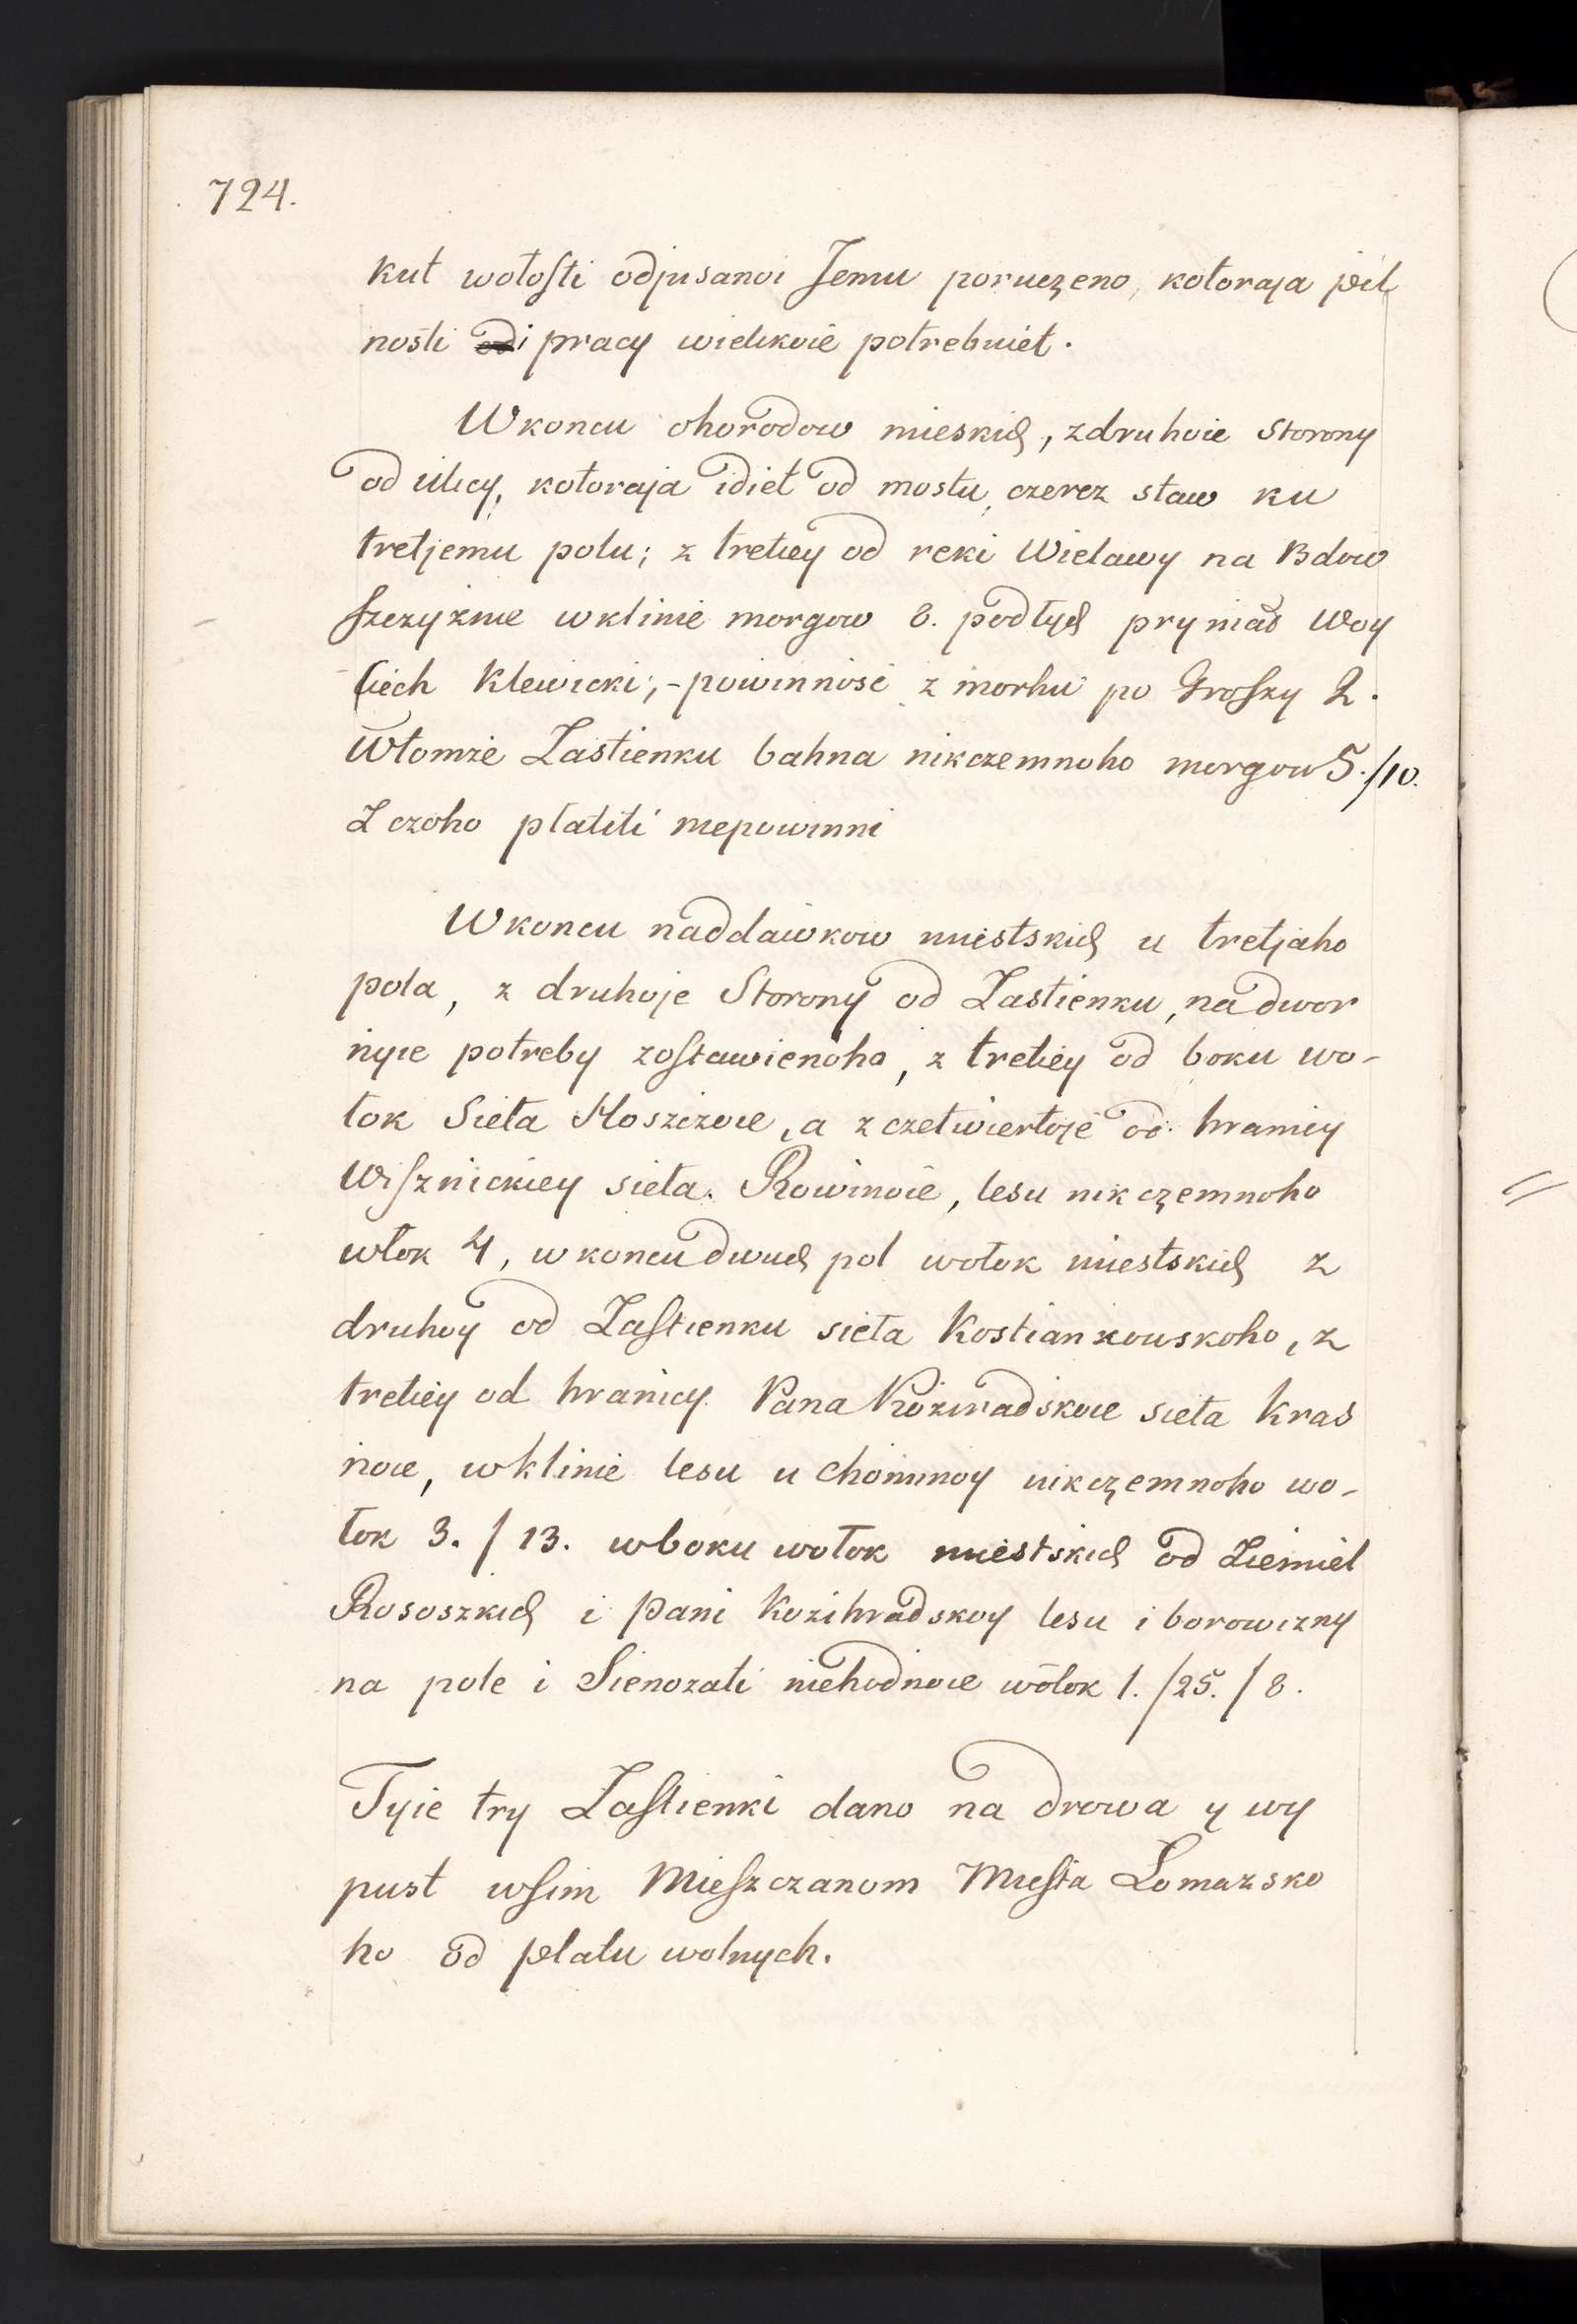 724.
kut wołosti odpisanoi Jemu poruczeno, kotoraja pil
nosti i pracy wielikoie potrebuiet.
Wkoncu ohorodow mieskich, zdruhoie storony
od ulicy, kotoraja idiet od mostu, czerez staw ku
tretjemu polu; z tretiey od reki Wielawy na Bdow
szczyznie wklinie morgow 8. podtych pryniał Woy
ciech Klewicki; - powinnosć z morhu po Groszy 2.
Wtomże Zastienku bahna nikczemnoho morgow 5./10.
Z czoho płatiti niepowinni
Wkoncu naddawkow miestskich u tretjaho
pola, z druhoje Storony od Zastienku, na dwor
nyie potreby zostawienoho, z tretiey od boku wo-
łok Sieła Hosziżoie, a z czetwiertoje od hranicy
Wisznickiey sieła. Rowinoie, lesu nikczemnoho
włok 4, w koncu dwuch pol wołok miestskich z
druhoy od Zastienku sieła Kostiankowskoho, z
tretiey od hranicy Pana Kożuradskoie sieła Kras
noie, wklinie lesu u Chominoy nikczemnoho wo-
łok 3. / 13. wboku wołok miestskich od Ziemiel
Rososzkich i pani Kozihradskoy lesu i borowizny
na pole i Sienozati niehodnoie wołok 1. /25. / 8.
Tyie try Zastienki dano na drowa y wy
pust wsim Mieszczanom Miesta Łomazsko
ho od płatu wolnych.